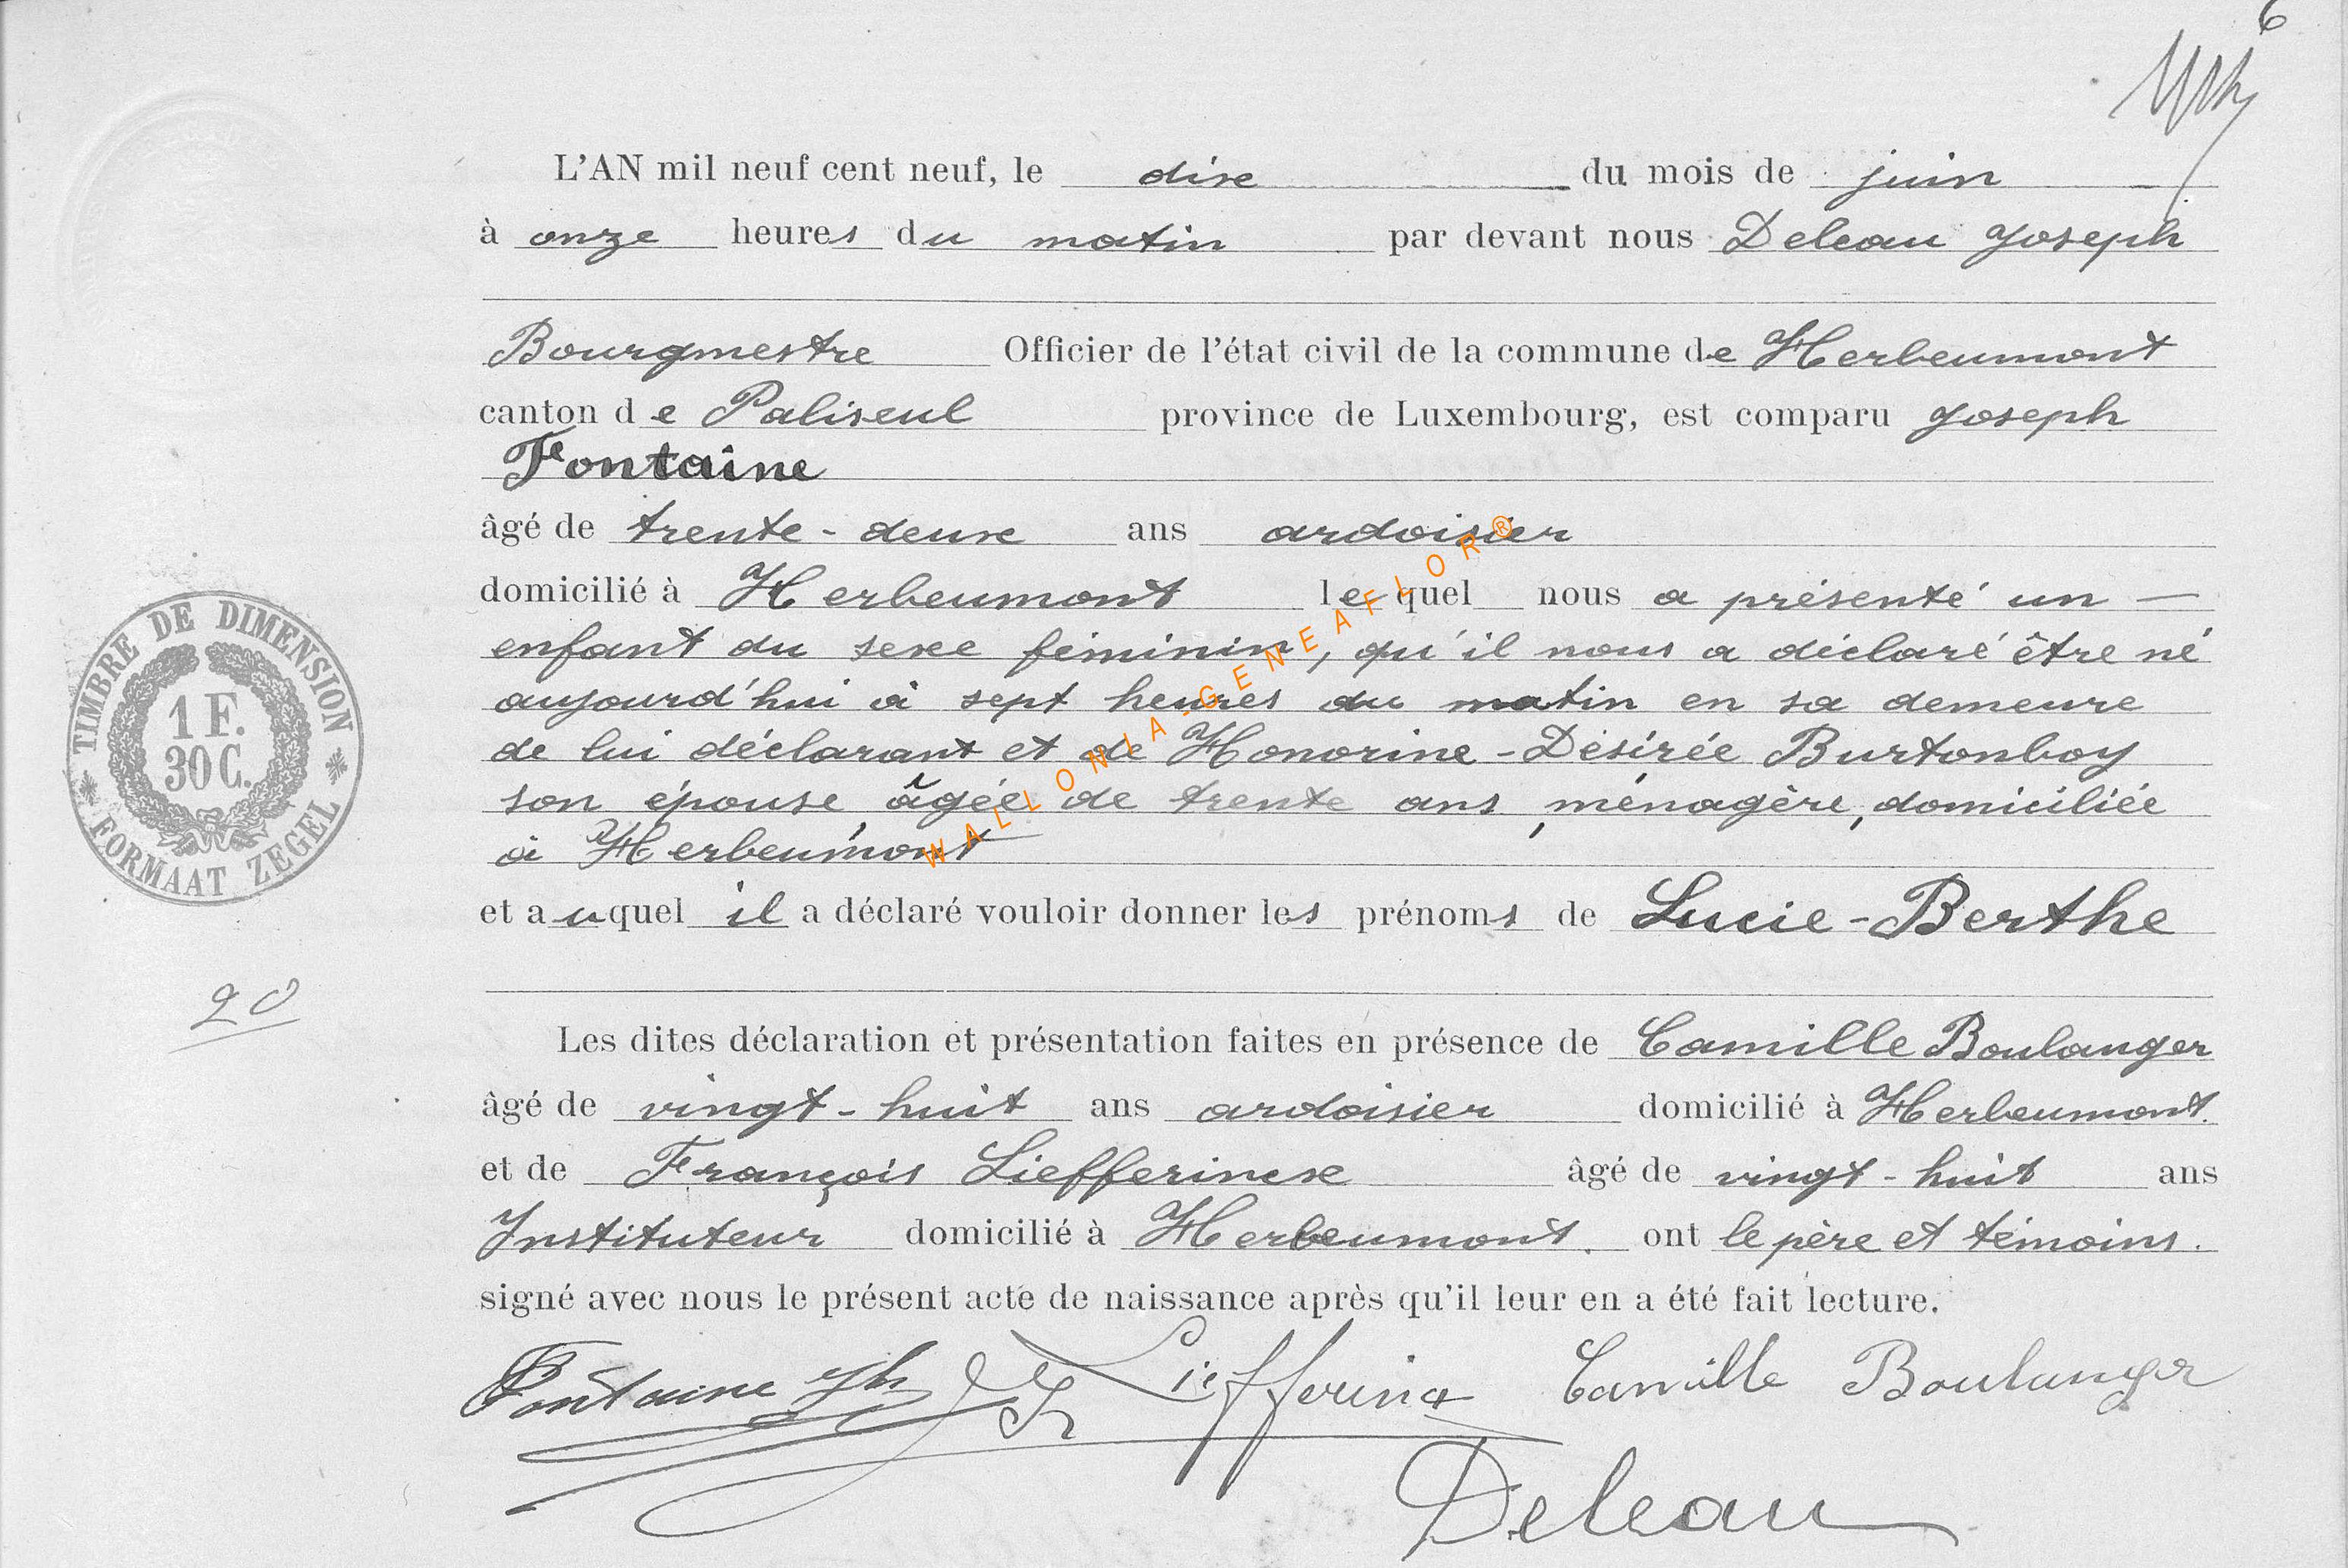 6
L'AN mil neuf cent neuf, le dix du mois de juin
à onze heures du matin par devant nous Deleau Joseph
Bourgmestre Officier de l'état civil de la commune de Herbeumont
canton de Paliseul province de Luxembourg, est comparu Joseph
Fontaine
âgé de trente-deux ans ardoisier
domicilié à Herbeumont lequel nous a présenté un —
enfant du sexe féminin, qu'il nous a déclaré être né
aujourd'hui à sept heures du matin en sa demeure
de lui déclarant et de Honorine-Désirée Burtonboy
son épouse, âgée de trente ans, ménagère, domiciliée
à Herbeumont
et auquel il a déclaré vouloir donner les prénoms de Lucie-Berthe
Les dites déclaration et présentation faites en présence de Camille Boulanger
âgé de vingt-huit ans ardoisier domicilié à Herbeumont.
et de François Liefferinckx âgé de vingt-huit ans
Instituteur domicilié à Herbeumont. ont le père et témoins.
signé avec nous le présent acte de naissance après qu'il leur en a été fait lecture.
Fontaine Jh Liefferinckx Camille Boulanger
Deleau
TIMBRE DE DIMENSION
1 F.
30 C.
FORMAAT ZEGEL
20
WALLONIA-GENEAFLOR®